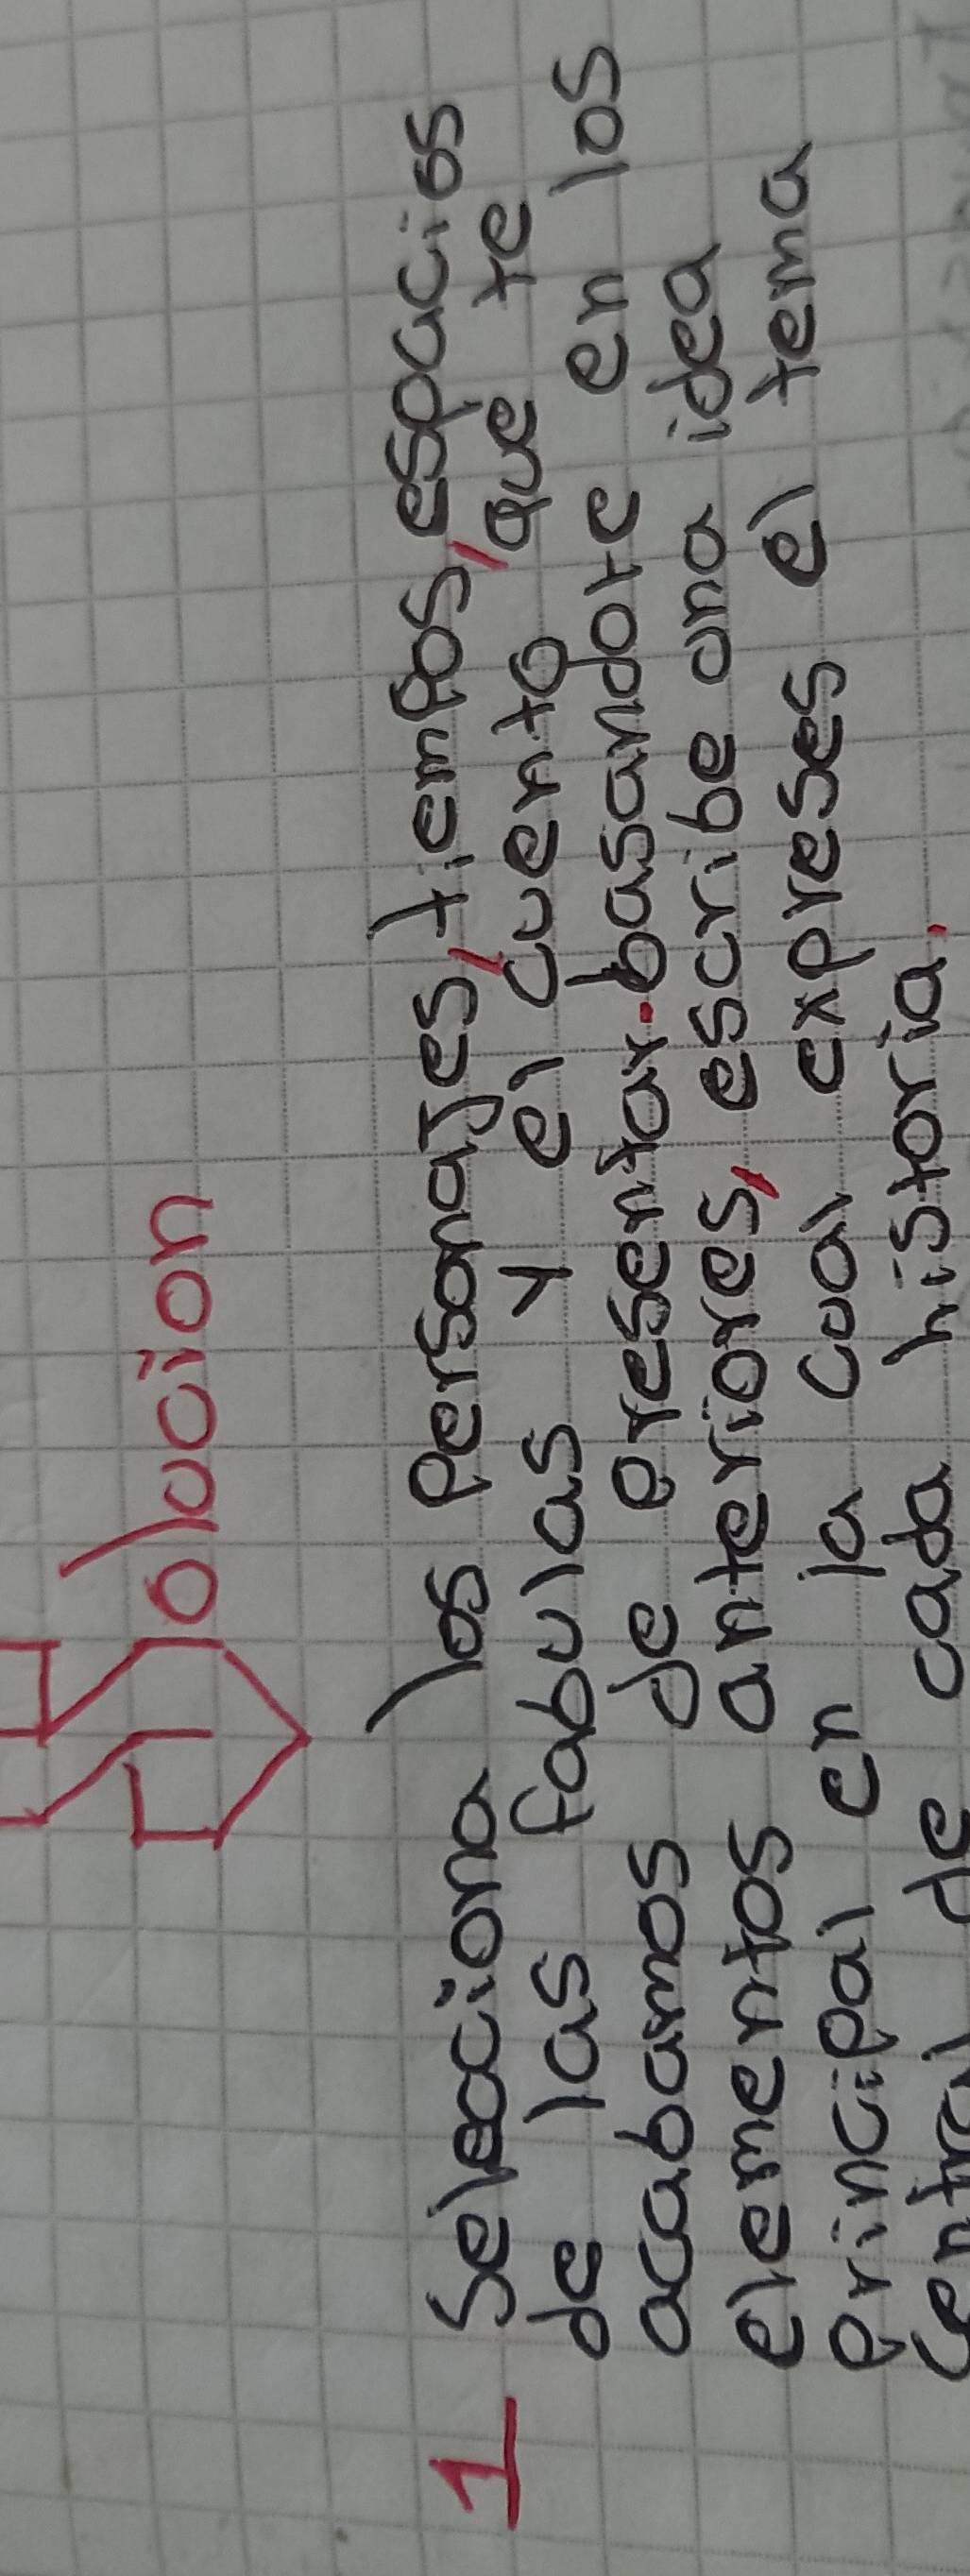 Solucion
1 Selecciona los personajes, tiempos, espacios
de las fabulas y el cuento que te
acabamos de presentar. basandote en los
elementos anteriores, escribe ona idea
principal en la coal expreses el tema
central de cada historia.